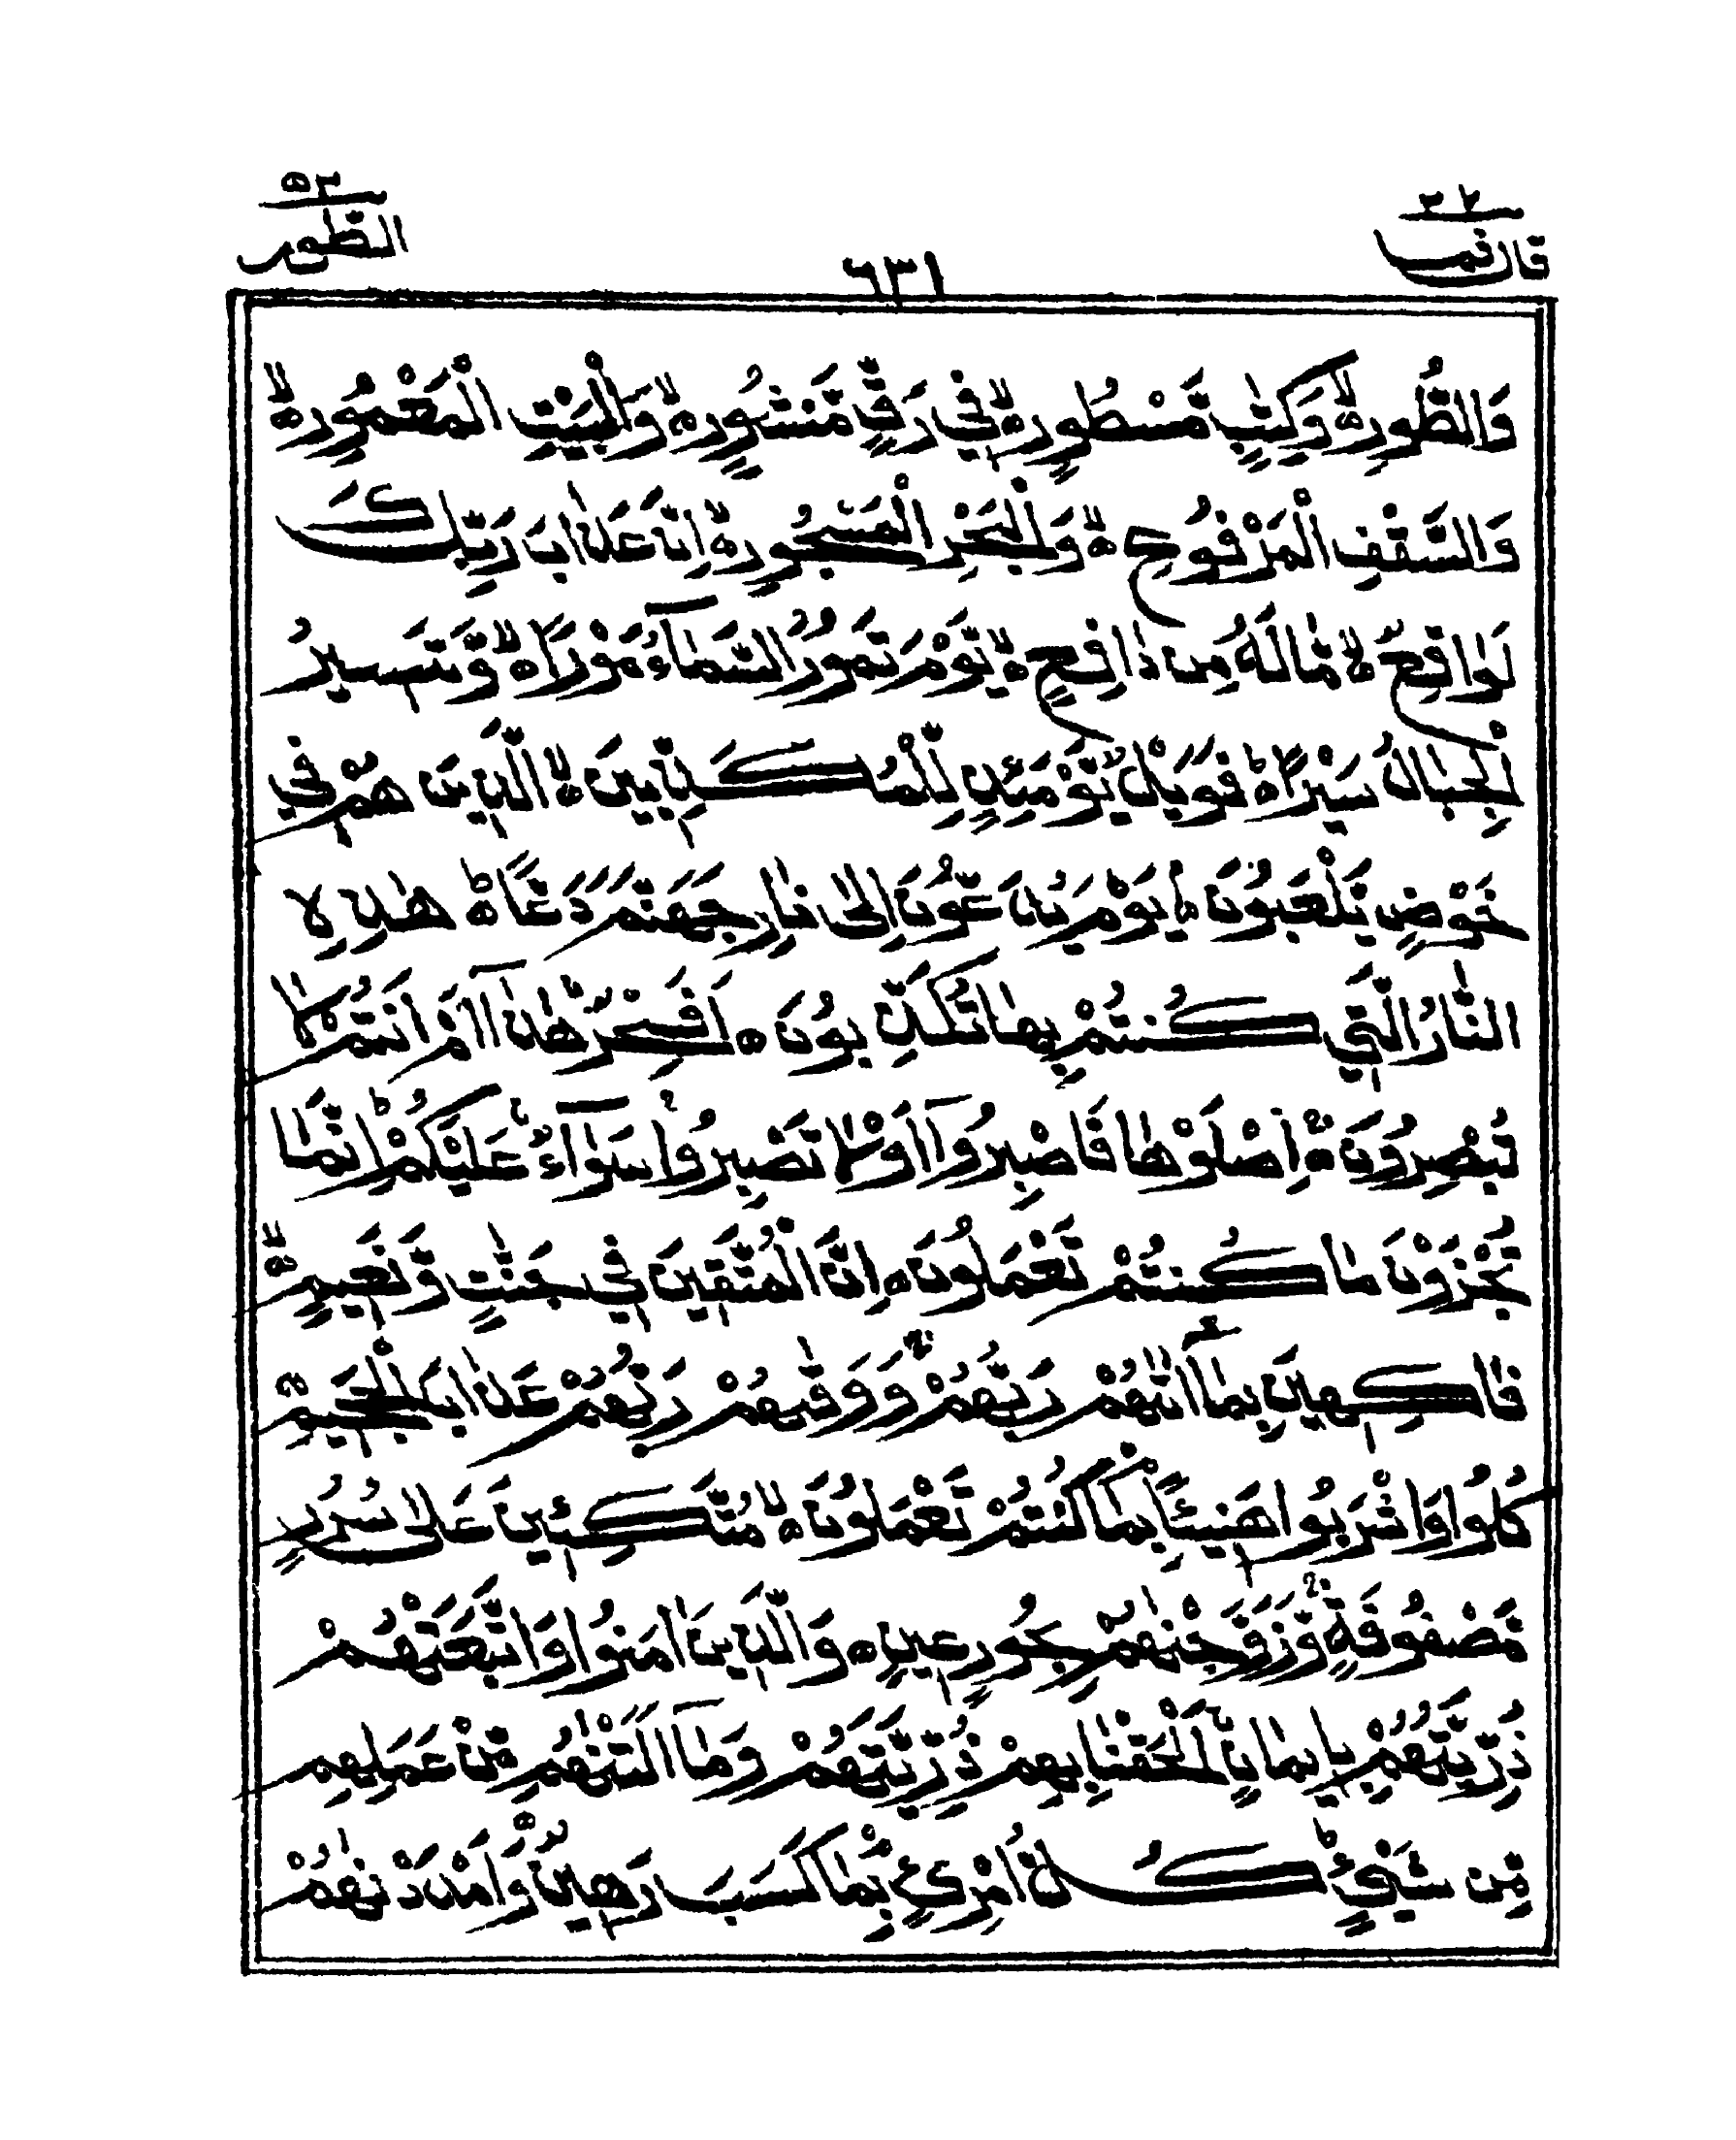 ٥٢
الطور
٦٣١
٢٧
قال فما
وَالطُّوْرِ ۙ وَكِتٰبٍ مَّسْطُوْرٍ ۙ فِيْ رَقٍّ مَّنْشُوْرٍ ۙ وَّالْبَيْتِ الْمَعْمُوْرِ ۙ
وَالسَّقْفِ الْمَرْفُوْعِ ۙ وَالْبَحْرِ الْمَسْجُوْرِ ۙ اِنَّ عَذَابَ رَبِّكَ
لَوَاقِعٌ ۙ مَّا لَهٗ مِنْ دَافِعٍ ۙ يَّوْمَ تَمُوْرُ السَّمَآءُ مَوْرًا ۙ وَّتَسِيْرُ
الْجِبَالُ سَيْرًا ؕ فَوَيْلٌ يَّوْمَئِذٍ لِّلْمُكَذِّبِيْنَ ۙ الَّذِيْنَ هُمْ فِيْ
خَوْضٍ يَّلْعَبُوْنَ ۘ يَوْمَ يُدَعُّوْنَ اِلٰى نَارِ جَهَنَّمَ دَعًّا ؕ هٰذِهِ
النَّارُ الَّتِيْ كُنْتُمْ بِهَا تُكَذِّبُوْنَ ۝ اَفَسِحْرٌ هٰذَآ اَمْ اَنْتُمْ لَا
تُبْصِرُوْنَ ۚ اِصْلَوْهَا فَاصْبِرُوْٓا اَوْ لَا تَصْبِرُوْا ۚ سَوَآءٌ عَلَيْكُمْ ؕ اِنَّمَا
تُجْزَوْنَ مَا كُنْتُمْ تَعْمَلُوْنَ ۝ اِنَّ الْمُتَّقِيْنَ فِيْ جَنّٰتٍ وَّنَعِيْمٍ ۙ
فَاكِهِيْنَ بِمَآ اٰتٰىهُمْ رَبُّهُمْ ۚ وَوَقٰىهُمْ رَبُّهُمْ عَذَابَ الْجَحِيْمِ ۝
كُلُوْا وَاشْرَبُوْا هَنِيْٓئًا بِمَا كُنْتُمْ تَعْمَلُوْنَ ۙ مُتَّكِئِيْنَ عَلٰى سُرُرٍ
مَّصْفُوْفَةٍ ۚ وَزَوَّجْنٰهُمْ بِحُوْرٍ عِيْنٍ ۝ وَالَّذِيْنَ اٰمَنُوْا وَاتَّبَعَتْهُمْ
ذُرِّيَّتُهُمْ بِاِيْمَانٍ اَلْحَقْنَا بِهِمْ ذُرِّيَّتَهُمْ وَمَآ اَلَتْنٰهُمْ مِّنْ عَمَلِهِمْ
مِّنْ شَيْءٍ ؕ كُلُّ امْرِئٍۢ بِمَا كَسَبَ رَهِيْنٌ ۝ وَاَمْدَدْنٰهُمْ